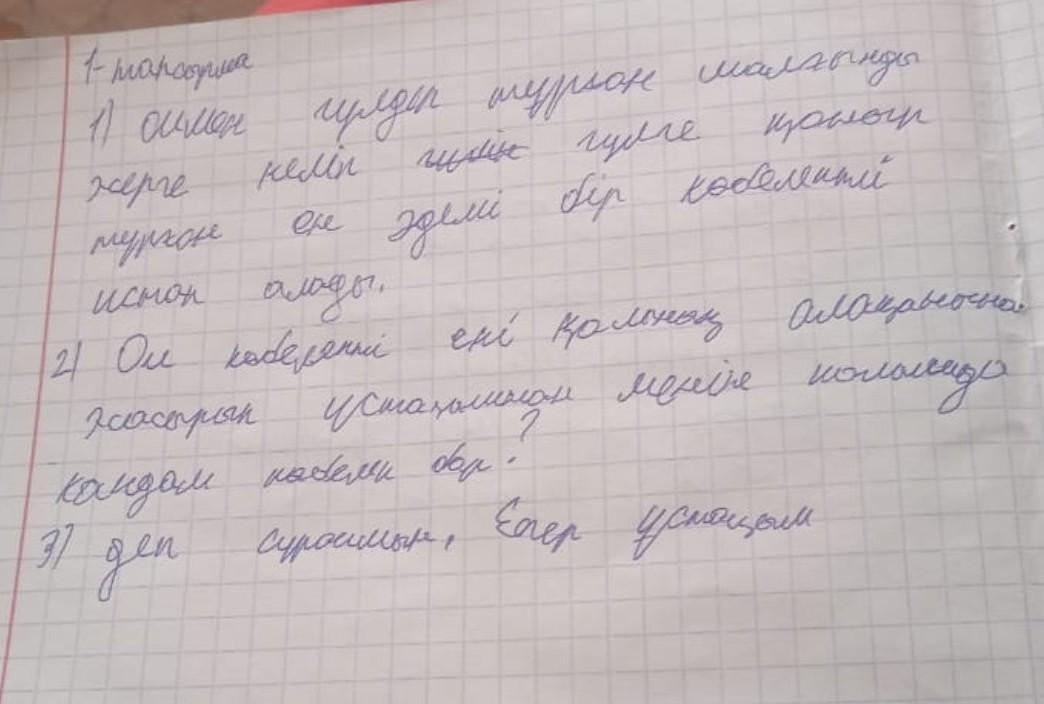 1-тарсырма
1) Олман гүлдеп тұрған шалғынды
жерге келіп гүлін гүлге қонып
тұрған ек әдемі бір көбелекті
ыстап алады.
2) Ол көбелекті екі қолының алақанына
жасырып ұстазынан менің колымда
кандам көбелек бар?
3) деп сұраймын, Егер ұстазым